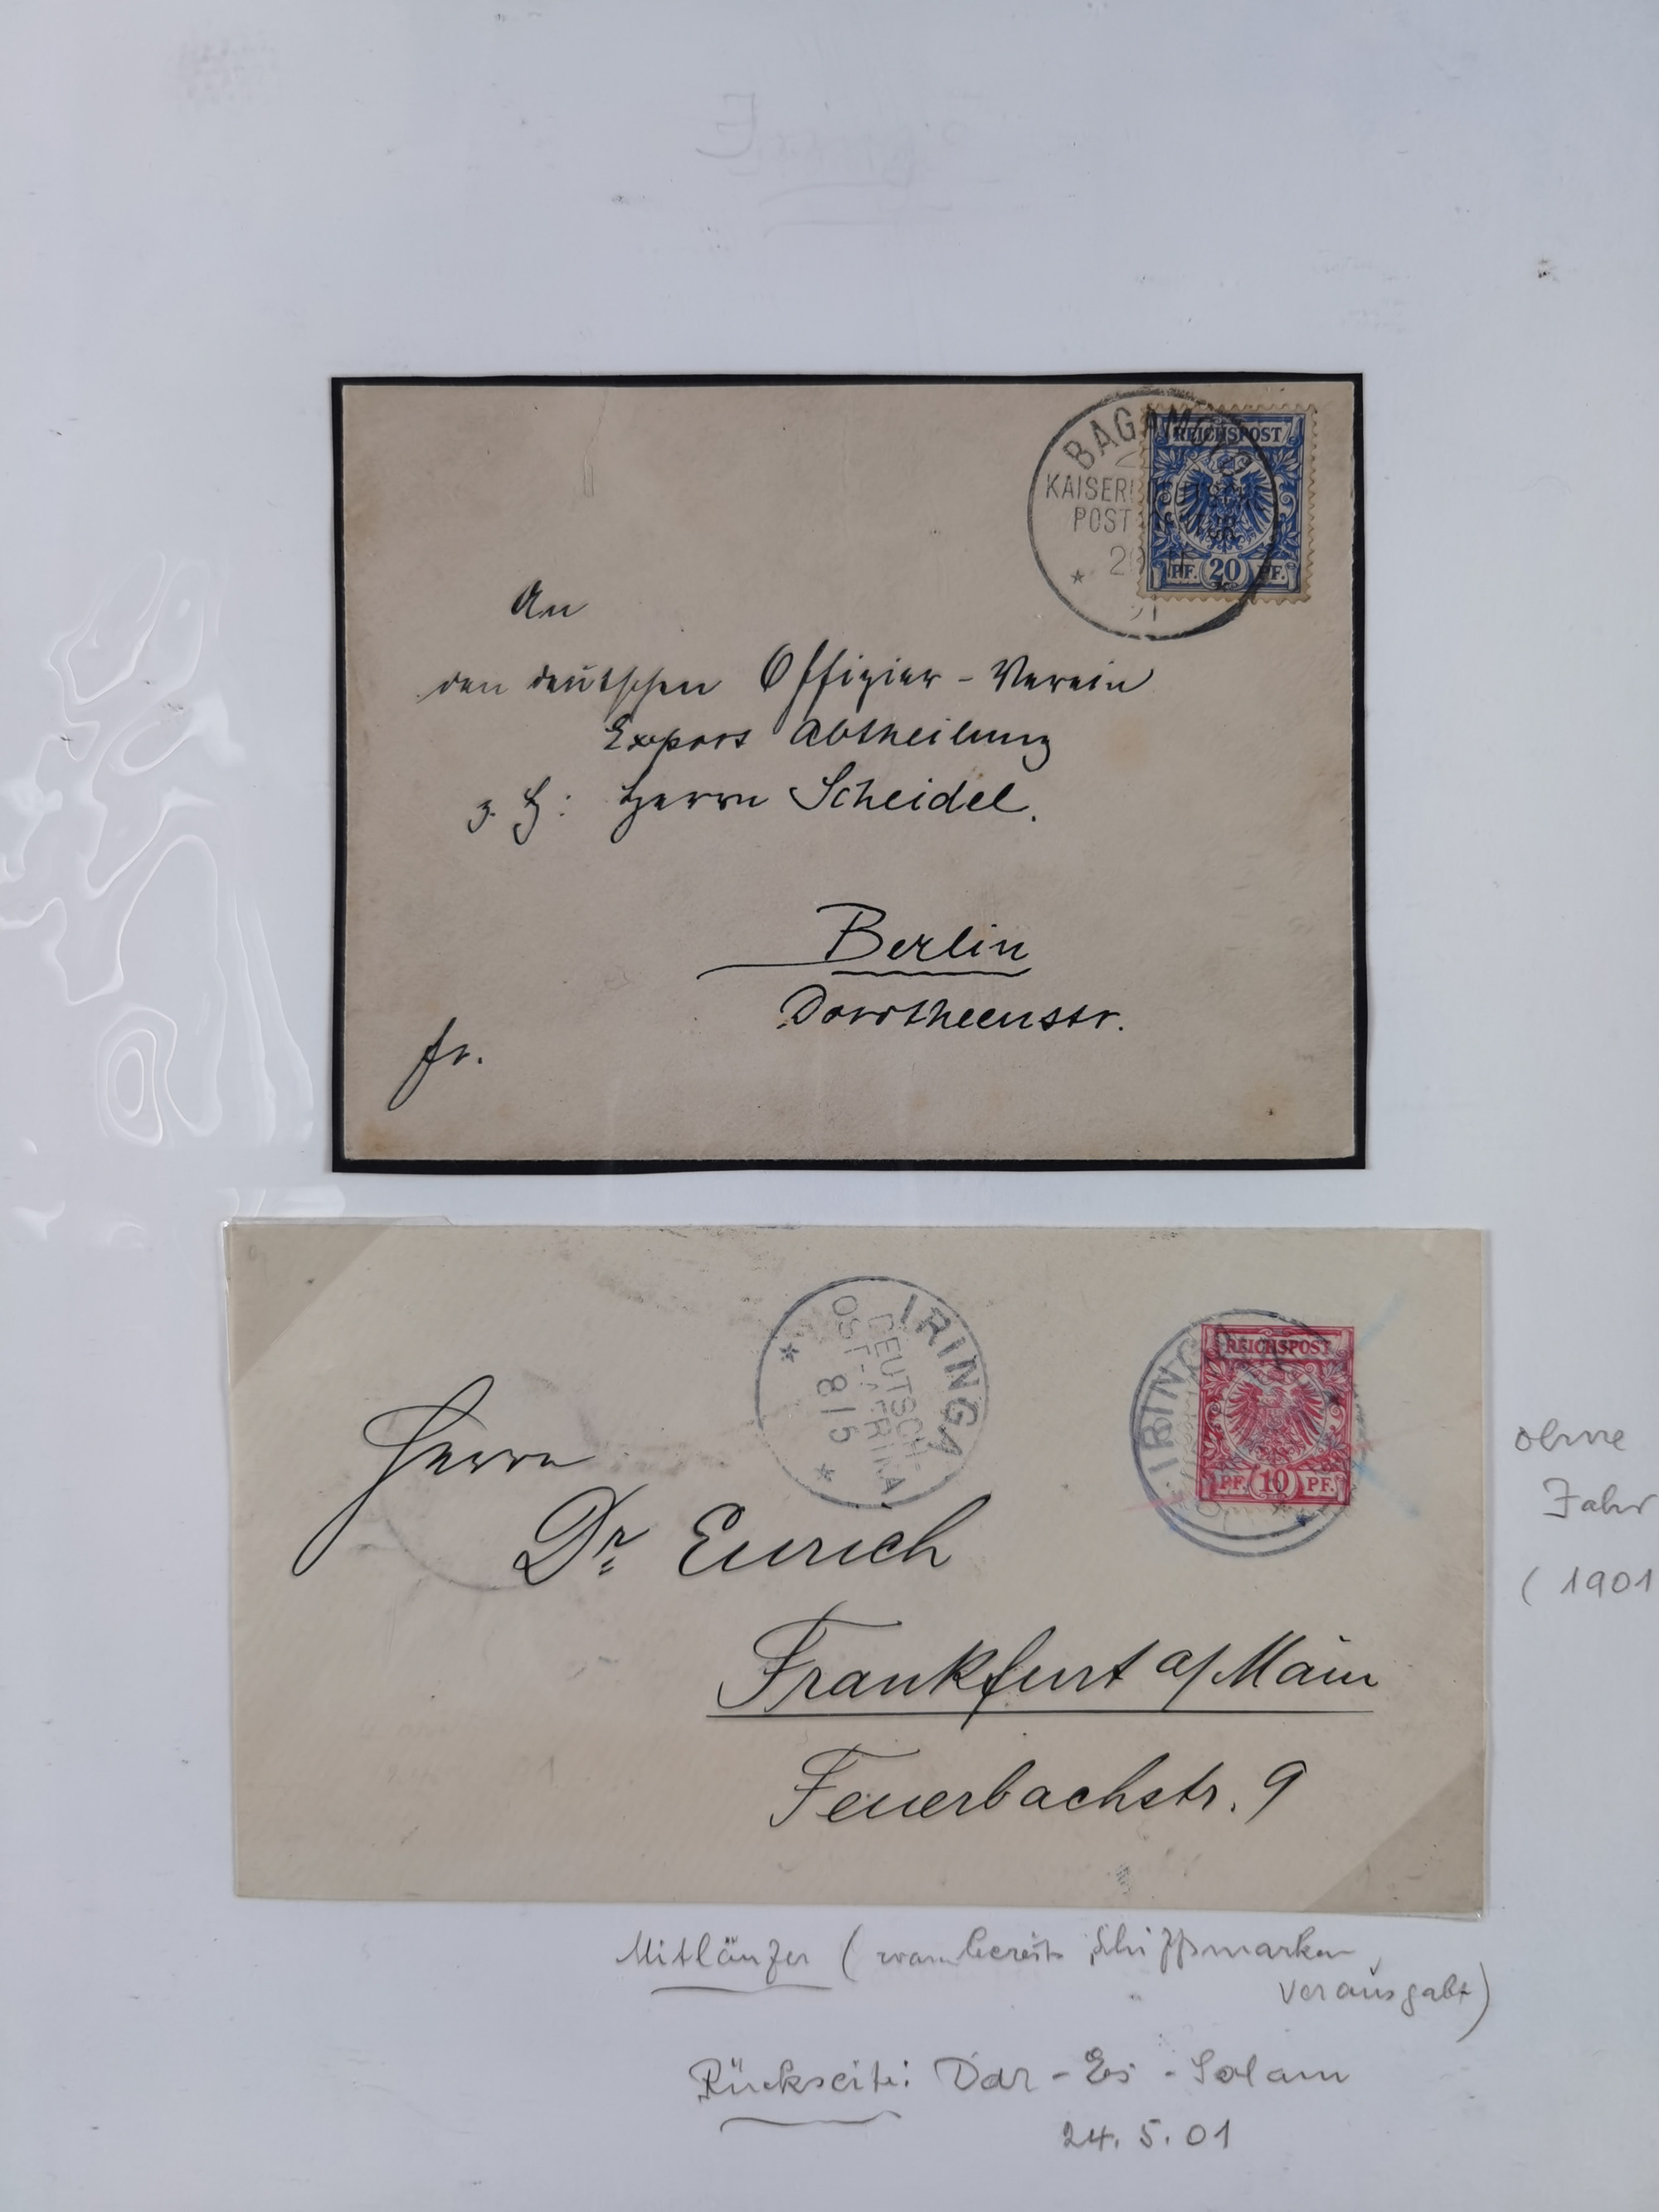 BAGAMOYO
KAISERL. DEUTSCHE
POST
REICHSPOST
PF. 20 PF.
An
den deutschen Offizier-Verein
Export Abtheilung
z. H: Herrn Scheidel.
Berlin
Dorotheenstr.
fr.
IRINGA
DEUTSCH-
OST-AFRIKA
8/5
IRINGA
REICHSPOST
PF. 10 PF.
Herrn
Dr Eurich
Frankfurt a/Main
Feuerbachstr. 9
ohne
Jahr
(1901
Mitläufer (waren bereits Schiffsmarken
verausgabt)
Rückseite: Dar-Es-Salam
24.5.01